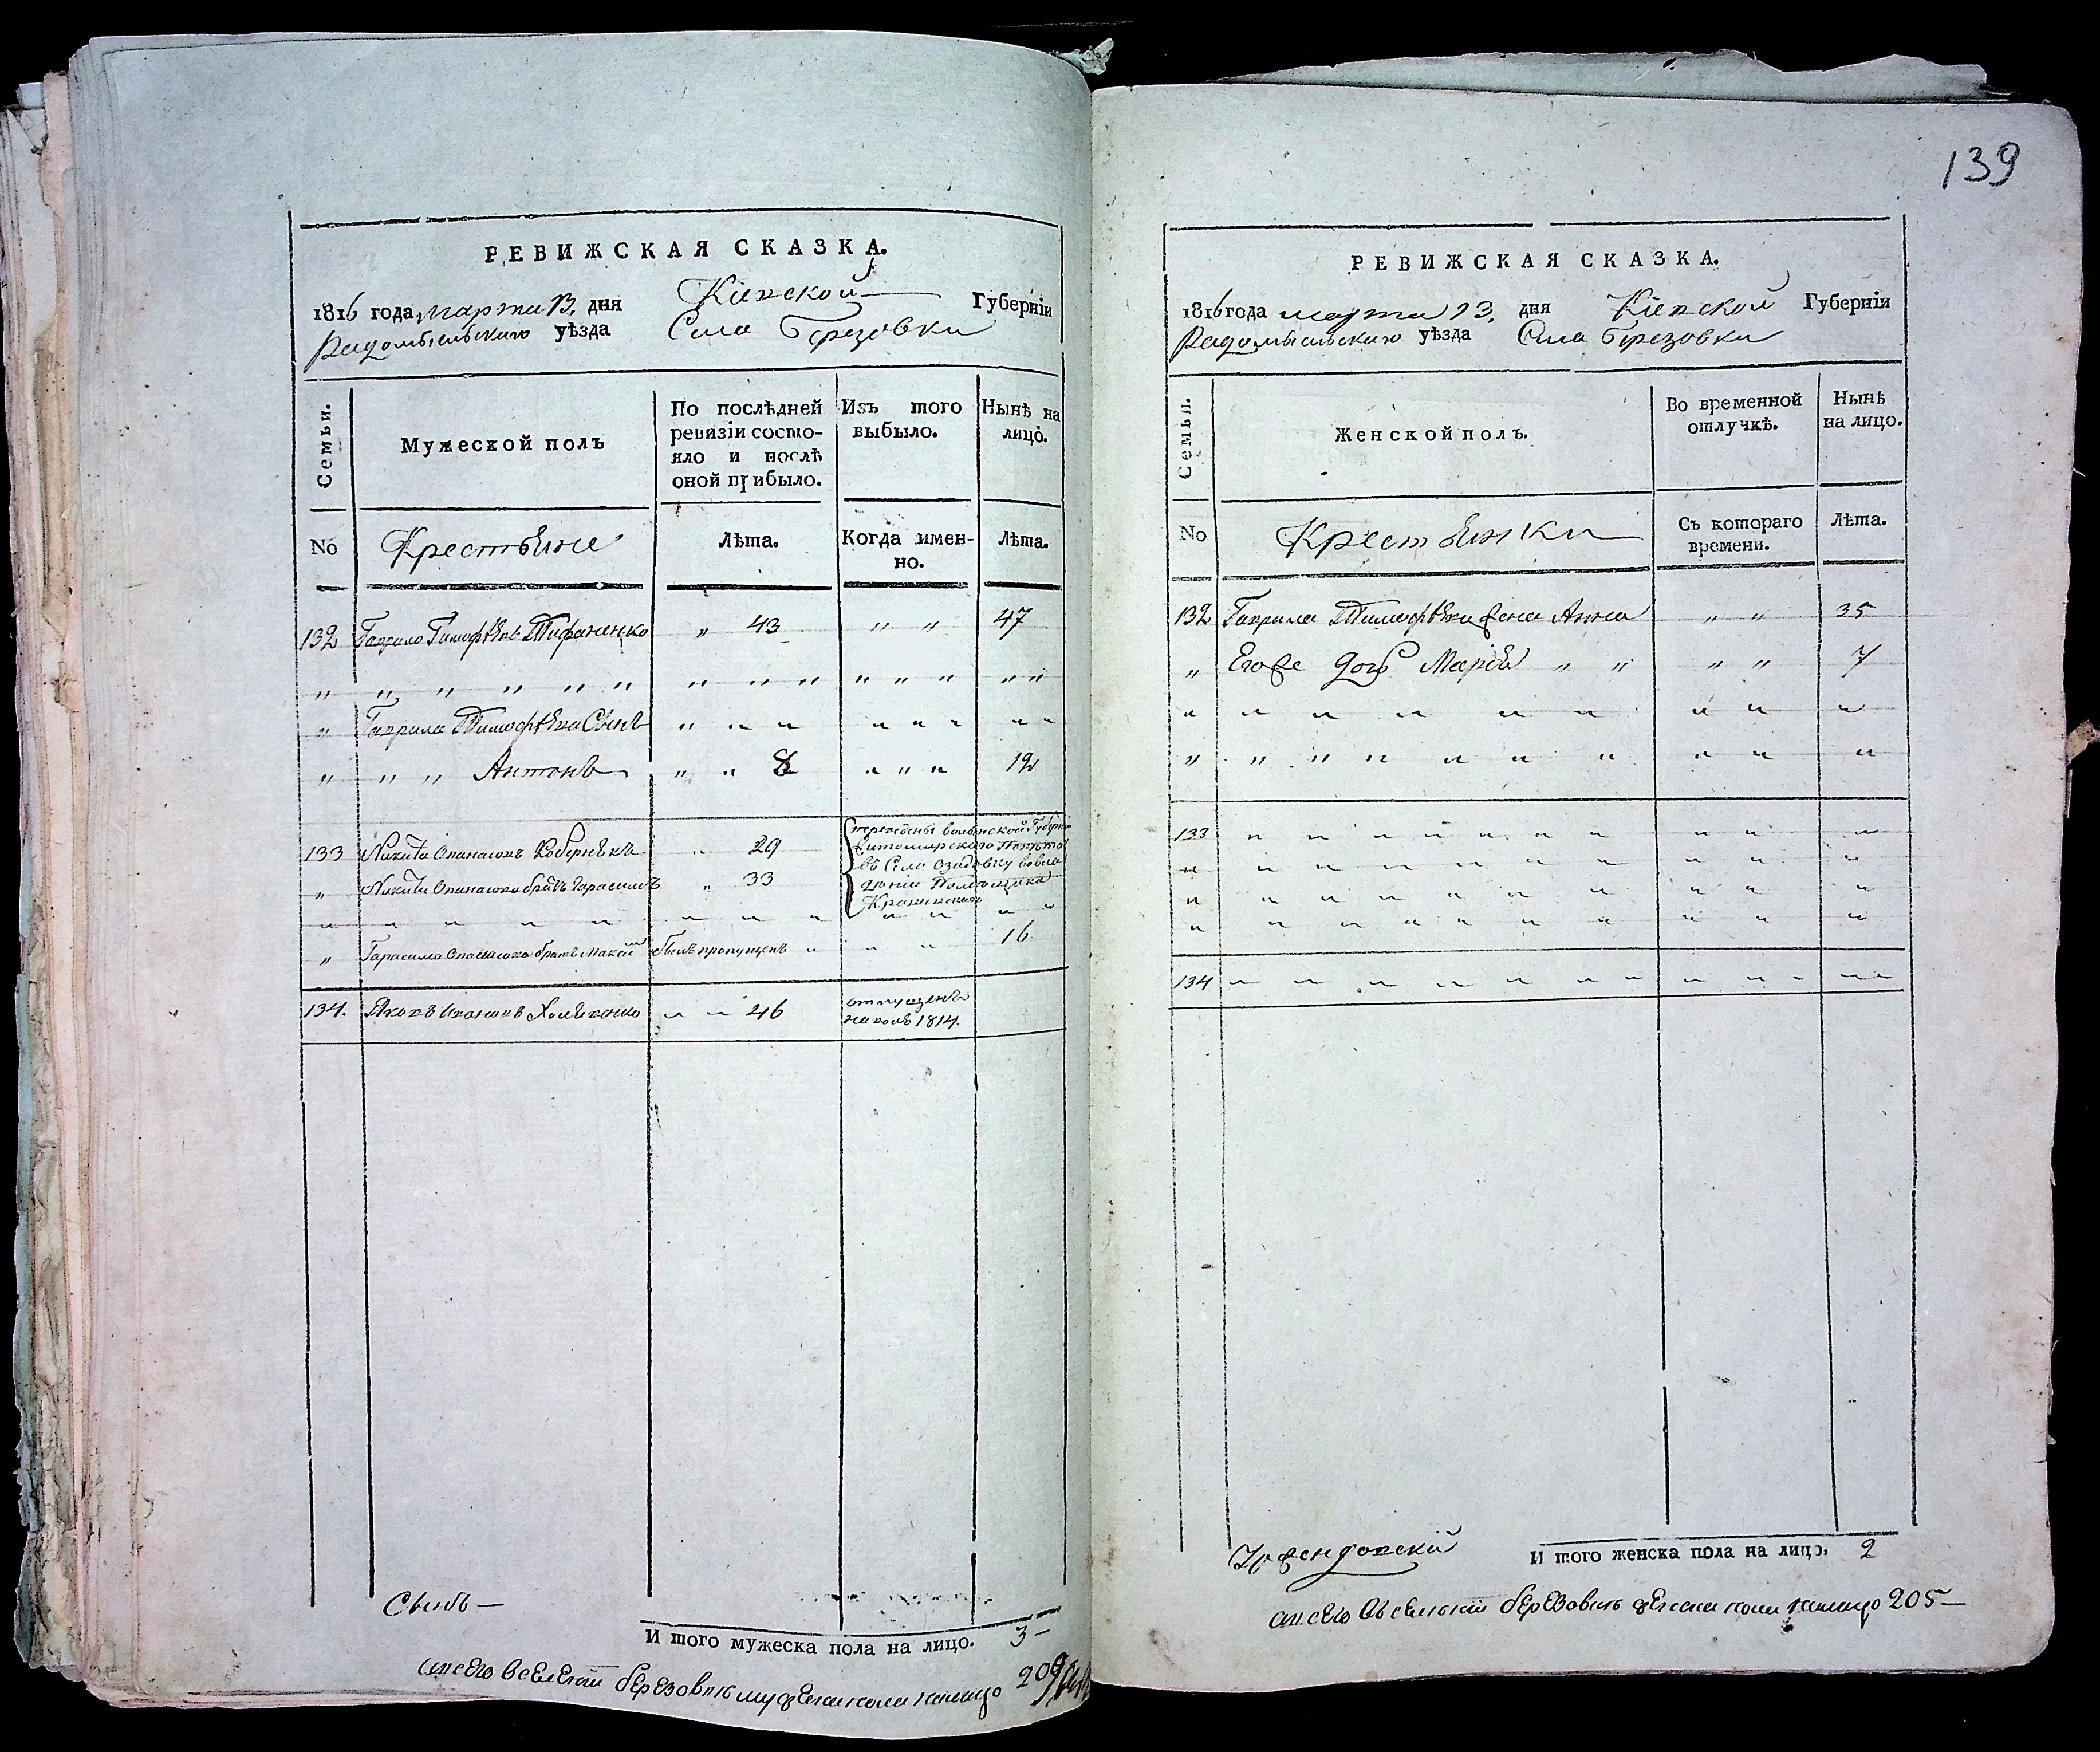 РЕВИЖСКАЯ СКАЗКА.
1816 года марта 13, дня Кіевской Губерніи
Радомысльскаго уѣзда Села Березовки
Семьи.
Мужеской полъ
По послѣдней ревизіи состо-
яло и послѣ
оной прибыло.
Изъ того
выбыло.
Нынѣ на
лицо.
No
Крестьяне
Лѣта.
Когда имен-
но.
Лѣта.
132 Гаврило Тимофѣевъ " 43 " " 47
" " " " " " " " " " " " " "
" Гаврила Тимофѣева Сынъ " " " " " " " "
" " " Антонъ " " 8 " " " 12
133 Никита Опанасовъ " 29
переведены волынской Губерн
житомирскаго Повѣта
въ Село
Помѣщика
" Никиты Опанасова братъ Герасимъ " 33
" " " " " " " " " " " "
" Герасима Опанасова братъ Макси былъ пропущенъ " " " 16
134. Яковъ " " 46 отпущенъ
на волю 1814.
Сынъ —
И того мужеска пола на лицо. 3 —
а всего в селенiи березовки мужеска пола налицо 209
139
РЕВИЖСКАЯ СКАЗКА.
1816 года марта 13, дня Кіевской Губерніи
Радомысльскаго уѣзда Села Березовки
Семьи.
Женской полъ.
Во временной
отлучкѣ.
Нынѣ
на лицо.
No
Крестьянки
Съ котораго
времени.
Лѣта.
132 Гаврила Тимофѣева жена Анна " " 35
" Егоже дочь Марія " " " " 7
" " " " " " " " " "
" " " " " " " " " " "
133 " " " " " " " " " "
" " " " " " " " " "
" " " " " " " " " "
" " " " " " " " " " "
134 " " " " " " " " " " " "
И того женска пола на лицо. 2
а всего въ селеніи березовки женска пола налицо 205 —